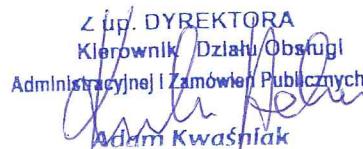 Z up. DYREKTORA
Kierownik Działu Obsługi
Administracyjnej i Zamówień Publicznych
Adam Kwaśniak